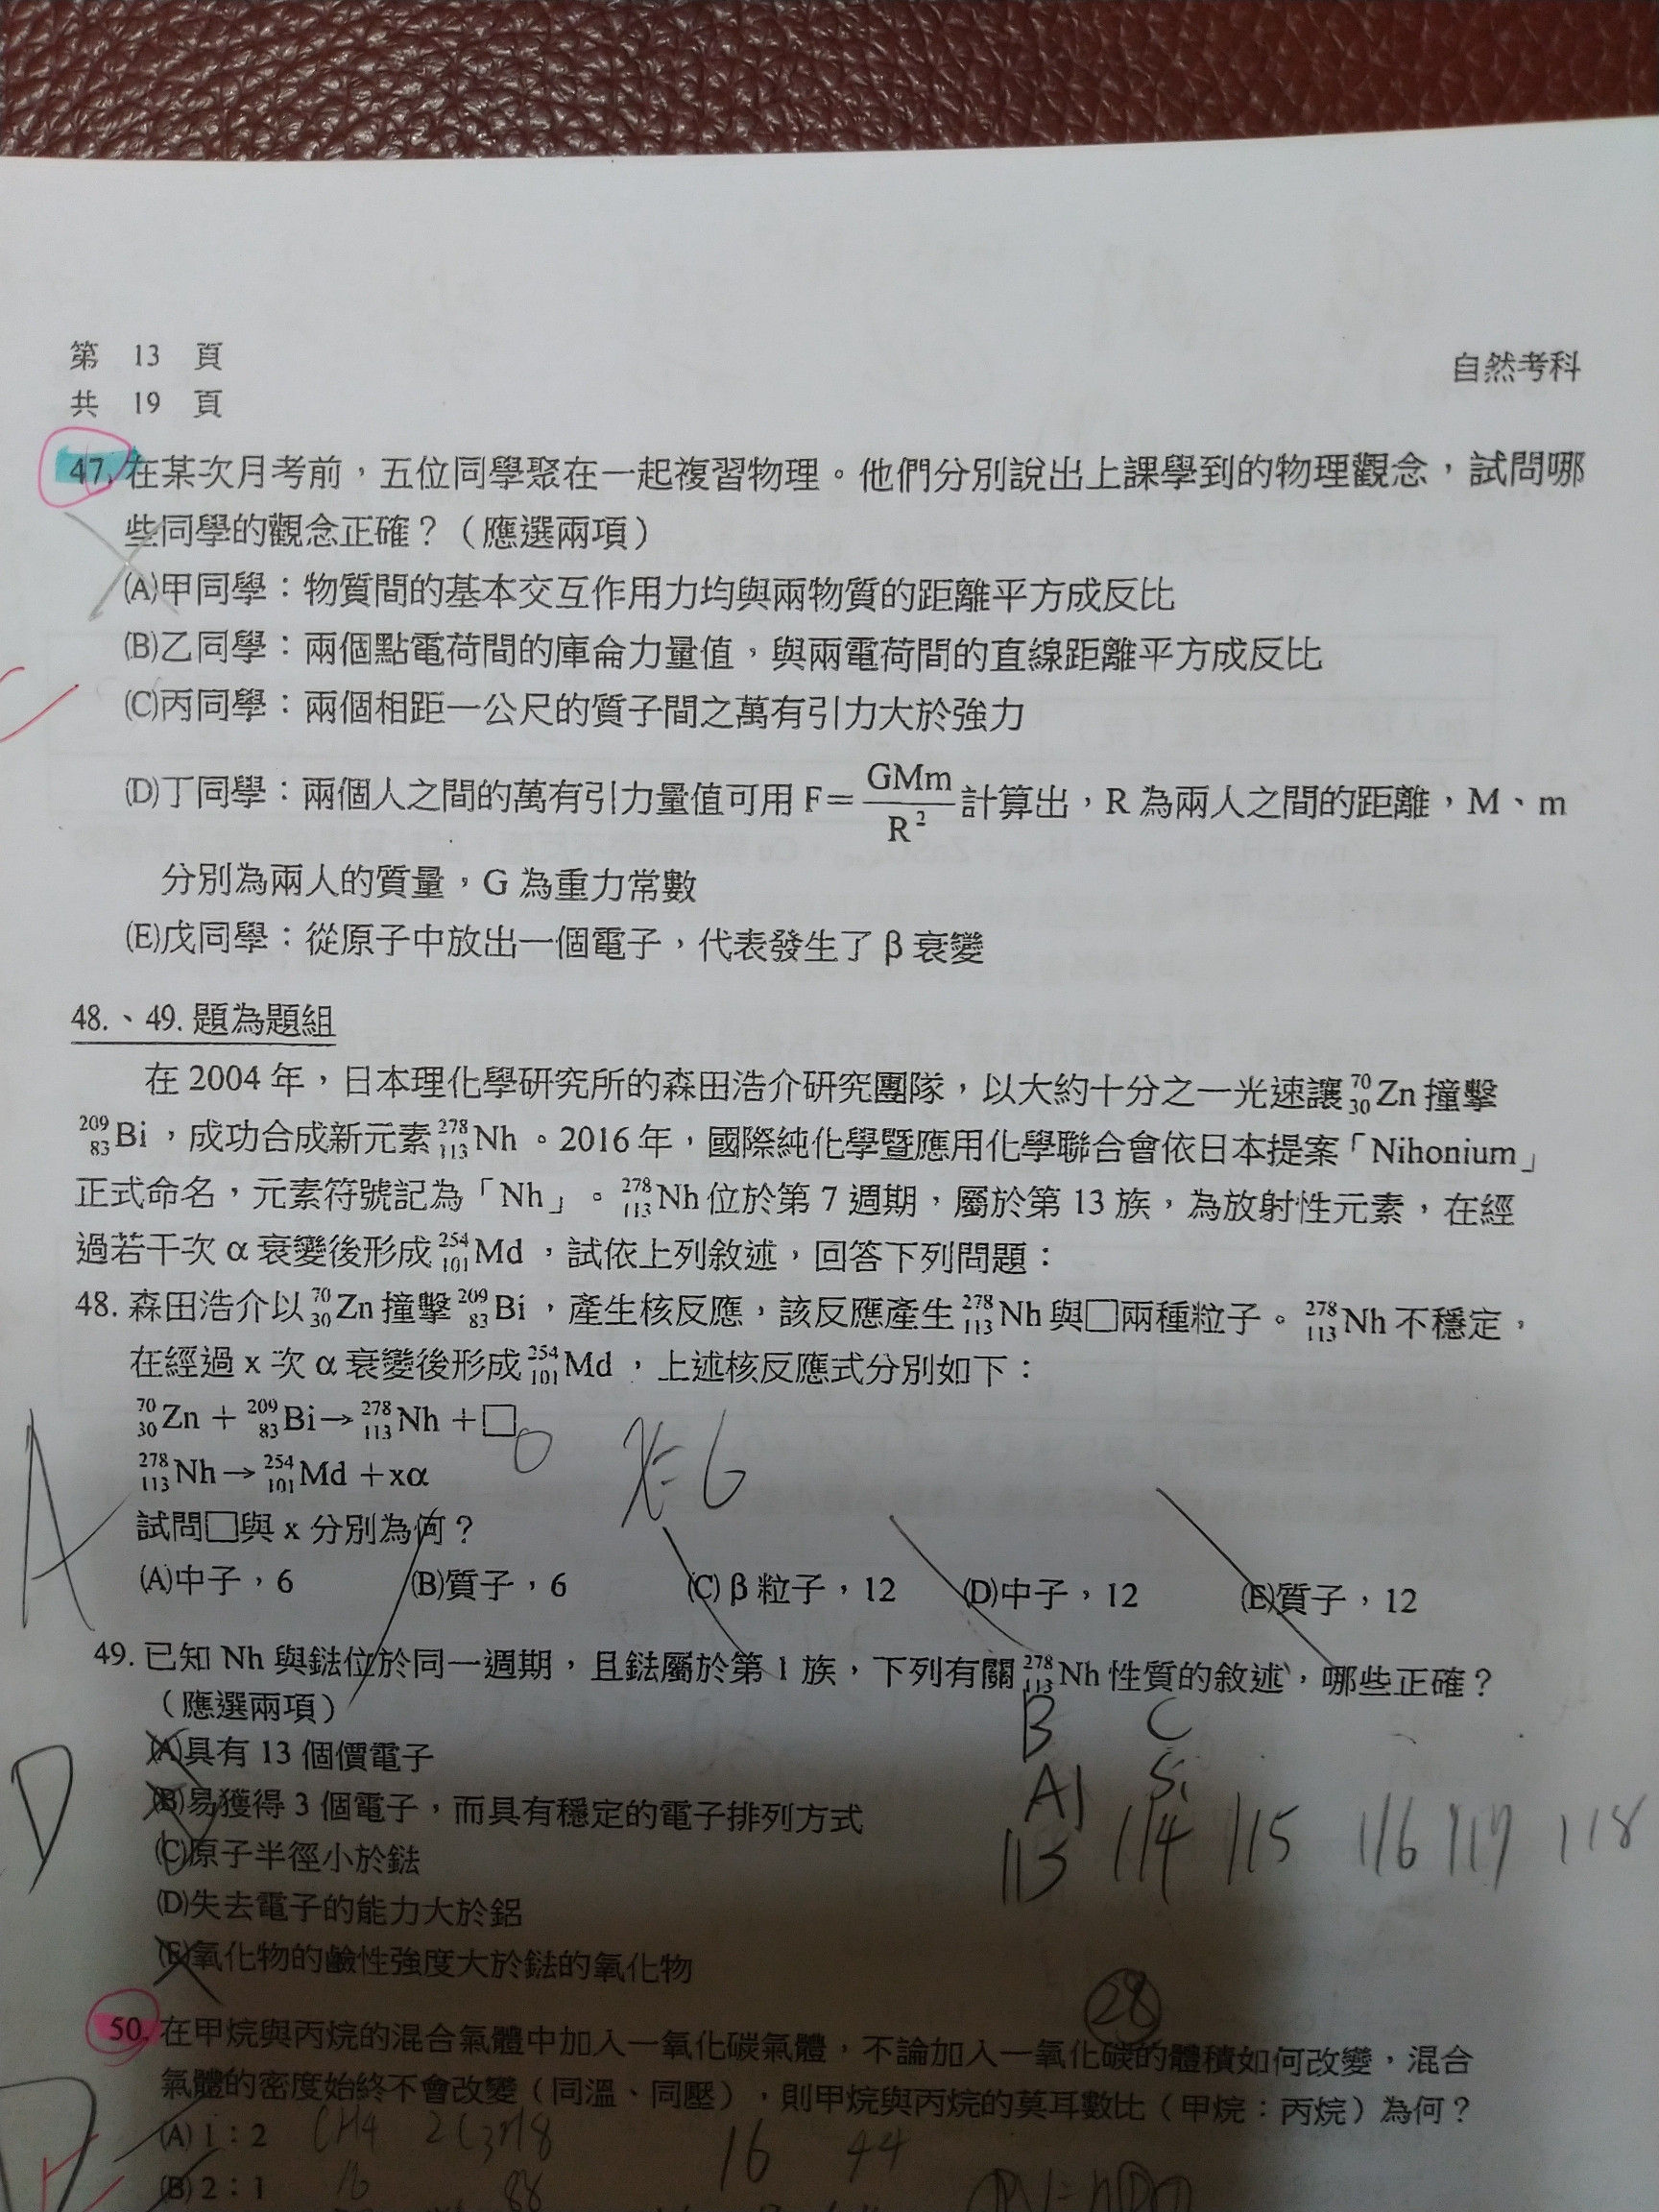 第 13 頁
共 19 頁
自然考科
47. 在某次月考前，五位同學聚在一起複習物理。他們分別說出上課學到的物理觀念，試問哪
些同學的觀念正確？（應選兩項）
(A)甲同學：物質間的基本交互作用力均與兩物質的距離平方成反比
(B)乙同學：兩個點電荷間的庫侖力量值，與兩電荷間的直線距離平方成反比
(C)丙同學：兩個相距一公尺的質子間之萬有引力大於強力
(D)丁同學：兩個人之間的萬有引力量值可用 F=GMm/R² 計算出，R 為兩人之間的距離，M、m
分別為兩人的質量，G 為重力常數
(E)戊同學：從原子中放出一個電子，代表發生了 β 衰變
48.、49. 題為題組
在 2004 年，日本理化學研究所的森田浩介研究團隊，以大約十分之一光速讓 ⁷⁰₃₀Zn 撞擊
²⁰⁹₈₃Bi，成功合成新元素 ²⁷⁸₁₁₃Nh。2016 年，國際純化學暨應用化學聯合會依日本提案「Nihonium」
正式命名，元素符號記為「Nh」。²⁷⁸₁₁₃Nh 位於第 7 週期，屬於第 13 族，為放射性元素，在經
過若干次 α 衰變後形成 ²⁵⁴₁₀₁Md，試依上列敘述，回答下列問題：
48. 森田浩介以 ⁷⁰₃₀Zn 撞擊 ²⁰⁹₈₃Bi，產生核反應，該反應產生 ²⁷⁸₁₁₃Nh 與□兩種粒子。²⁷⁸₁₁₃Nh 不穩定，
在經過 x 次 α 衰變後形成 ²⁵⁴₁₀₁Md，上述核反應式分別如下：
⁷⁰₃₀Zn + ²⁰⁹₈₃Bi→ ²⁷⁸₁₁₃Nh +□
0
x=6
²⁷⁸₁₁₃Nh→ ²⁵⁴₁₀₁Md +xα
A
試問□與 x 分別為何？
(A)中子，6 (B)質子，6 (C)β 粒子，12 (D)中子，12 (E)質子，12
49. 已知 Nh 與鍅位於同一週期，且鍅屬於第 1 族，下列有關 ²⁷⁸₁₁₃Nh 性質的敘述，哪些正確？
（應選兩項）
B C
(A)具有 13 個價電子
Al Si
(B)易獲得 3 個電子，而具有穩定的電子排列方式
D
113 114 115 116 117 118
(C)原子半徑小於鍅
(D)失去電子的能力大於鋁
(E)氧化物的鹼性強度大於鍅的氧化物
28
50. 在甲烷與丙烷的混合氣體中加入一氧化碳氣體，不論加入一氧化碳的體積如何改變，混合
氣體的密度始終不會改變（同溫、同壓），則甲烷與丙烷的莫耳數比（甲烷：丙烷）為何？
(A) 1：2
CH4 2C3H8
16 44
(B) 2：1
16 88